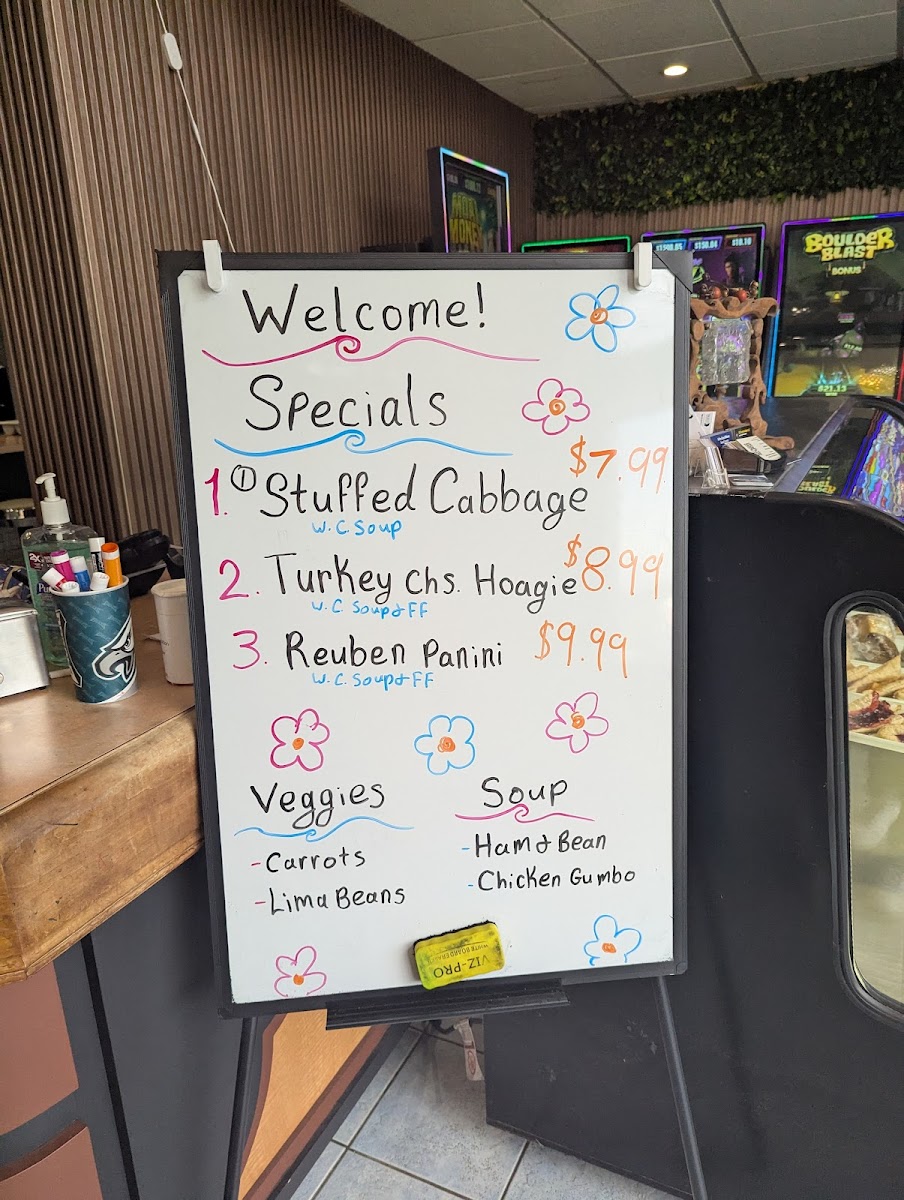 Welcome!
Specials
1. ① Stuffed Cabbage $7.99
W.C. Soup
2. Turkey chs. Hoagie $8.99
W.C. Soup & FF
3. Reuben Panini $9.99
W.C. Soup & FF
Veggies
- Carrots
- Lima Beans
Soup
- Ham & Bean
- Chicken Gumbo
VIZ-PRO
WHITE BOARD ERASER
BOULDER
BLAST
BONUS
$21.13